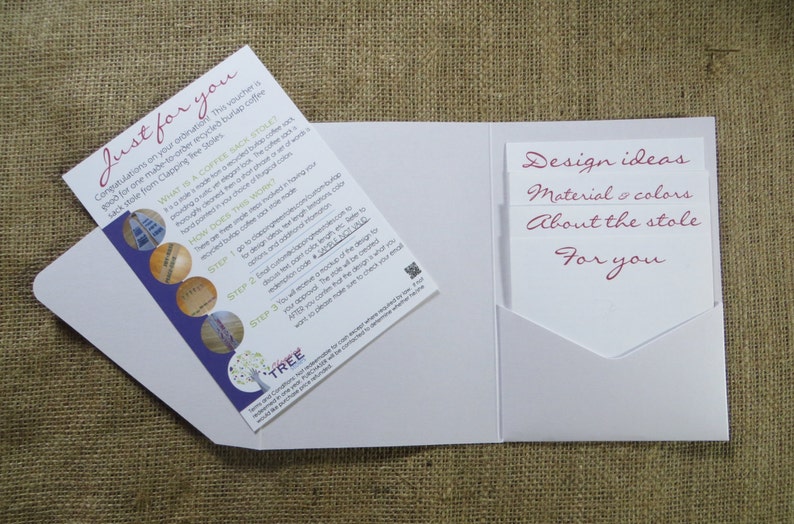 Just for you
Congratulations on your ordination! This voucher is
good for one made-to-order recycled burlap coffee
sack stole from Clapping Tree Stoles.
WHAT IS A COFFEE SACK STOLE?
It is a stole made from a recycled burlap coffee sack,
providing a simple yet elegant look. The coffee sack is
thoroughly cleaned, then a short phrase or set of words is
hand painted in your choice of liturgical colors.
HOW DOES THIS WORK?
There are three simple steps involved in having your
recycled burlap coffee sack stole made:
STEP 1 go to clappingtreestoles.com/custom-burlap
for design ideas, text length limitations, color
options and additional information.
STEP 2 Email custom@clappingtreestoles.com to
discuss text, paint color, length, etc. Refer to
redemption code: # SAMPLE NOT VALID
STEP 3 You will receive a mockup of the design for
your approval. The stole will be created
AFTER you confirm that the design is what you
want, so please make sure to check your email.
Clapping
TREE
Terms and Conditions: Not redeemable for cash except where required by law. If not
redeemed in one year, PURCHASER will be contacted to determine whether he/she
would like purchase price refunded.
Design ideas
Material & colors
About the stole
For you